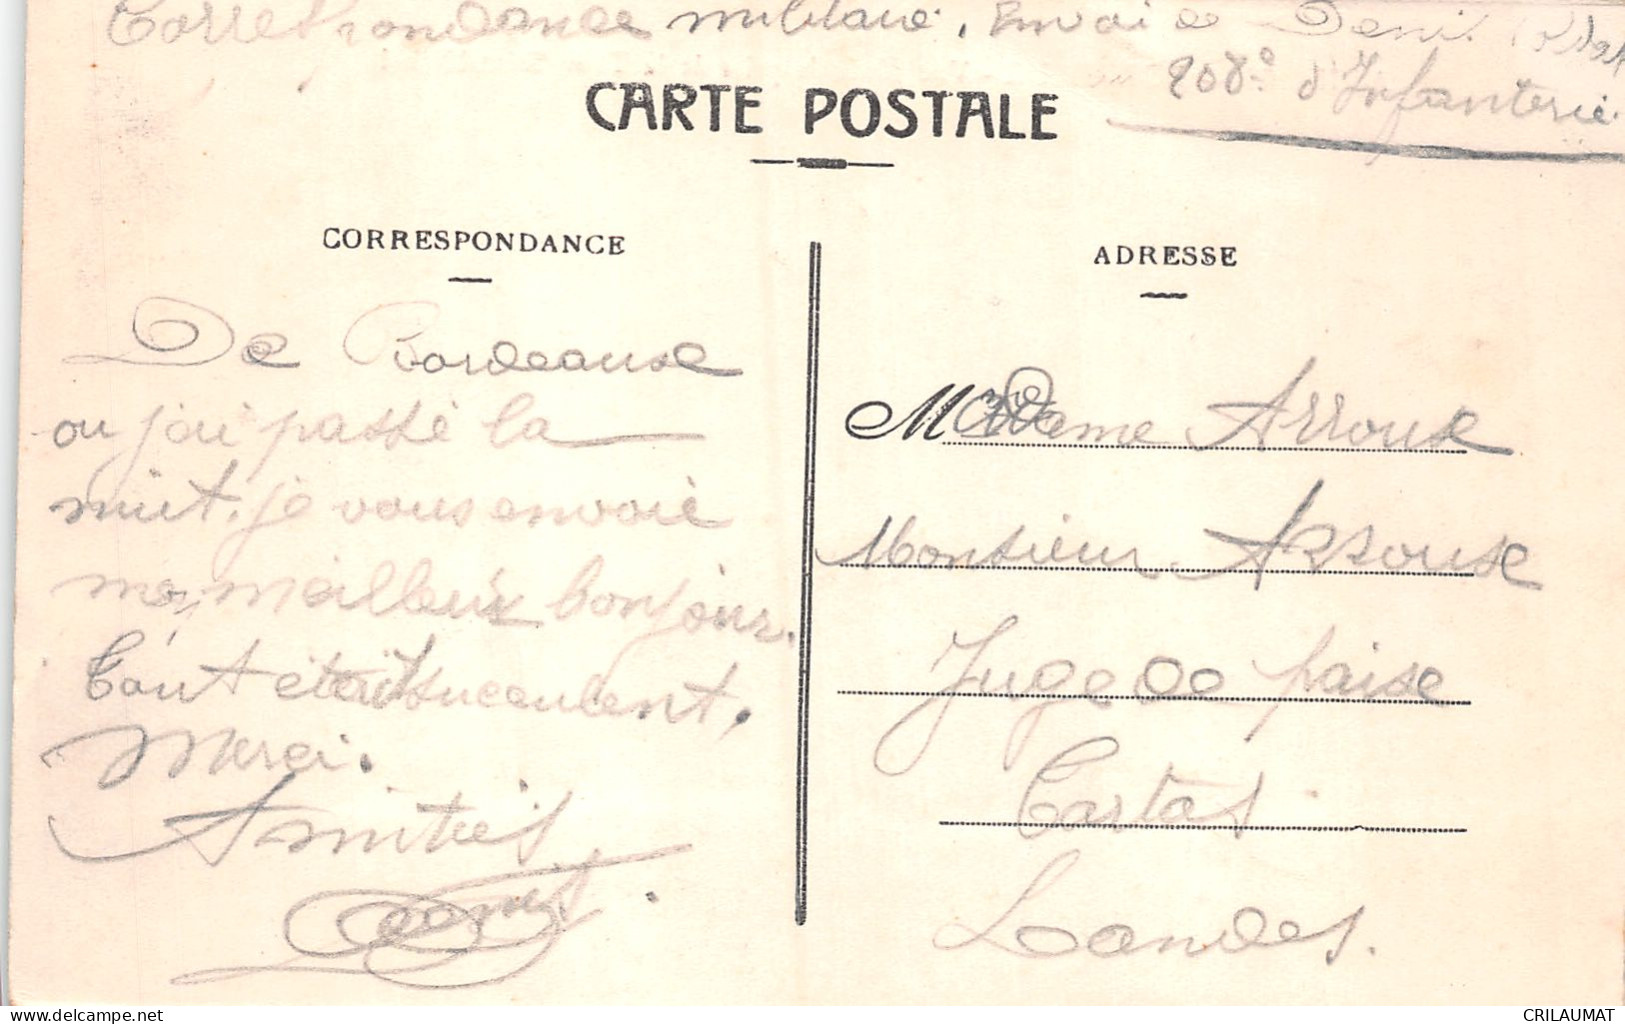 Correspondance militaire. Envoi de Denis
208e d'Infanterie
CARTE POSTALE
CORRESPONDANCE
ADRESSE
De Bordeaux
ou j'ai passé la
nuit, je vous envoie
mes meilleurs bonjours.
Tout était succulent.
Merci.
Amitiés
Madame Arroux
Monsieur Arroux
Juge de paix
Tartas
Landes.
www.delcampe.net
CRILAUMAT